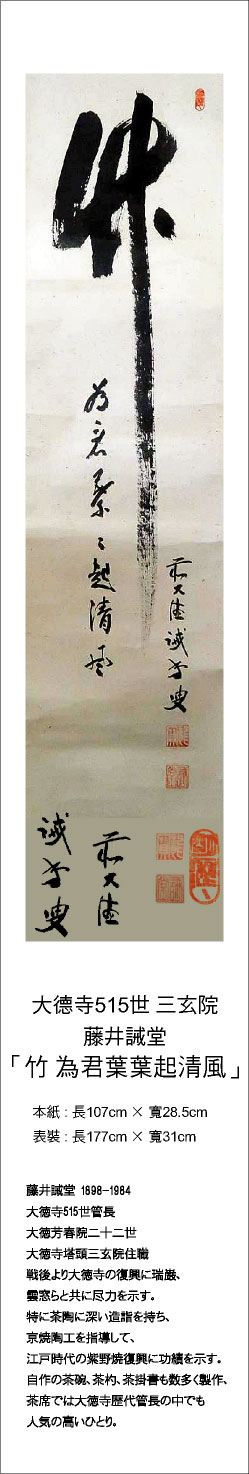 竹
為君葉々起清風
前大徳誡堂叟
前大徳
誡堂叟
大德寺515世 三玄院
藤井誡堂
「竹 為君葉葉起清風」
本紙 : 長107cm × 寬28.5cm
表裝 : 長177cm × 寬31cm
藤井誡堂 1898-1984
大徳寺515世管長
大徳芳春院二十二世
大徳寺塔頭三玄院住職
戦後より大徳寺の復興に瑞巌、
雲窓らと共に尽力を示す。
特に茶陶に深い造詣を持ち、
京焼陶工を指導して、
江戸時代の紫野焼復興に功績を示す。
自作の茶碗、茶杓、茶掛書も数多く製作、
茶席では大徳寺歴代管長の中でも
人気の高いひとり。